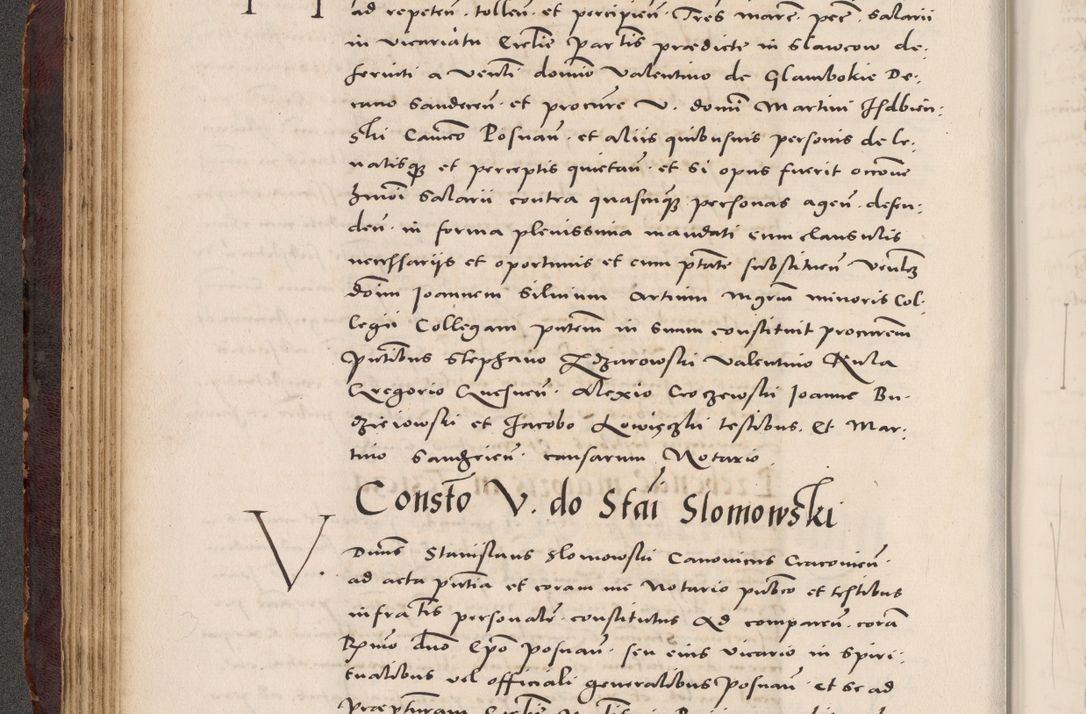 ad repeten. tollen. et percipien. Tres marc. pec. salarii
in vicariatu Ecclie partis praedicte in Slawcow de-
ferinti a venli domino Valentino de Glambokie De-
cano Sandecen. et procure V. domi Martini Isdbien-
ski Canico Posnan. et aliis quibusvis personis de le-
vatisque et perceptis quietan. et si opus fuerit occone
hmoi salarii contra quascunque personas agen. defen-
den. in forma plenissima mandati cum clausulis
necessariis et oportunis et cum ptate substituen. Venlem
doim Joannem Silvium Artium Mgrm minoris Col-
legii Collegam pntem in suum constituit procurem
Pntibus Stephano Kdzarowski Valentino Kula
Gregorio Gnesnen. Alexio Croczewski Joanne Bu-
dzieiowski et Jacobo Lowięczki testibus. Et Mar-
tino Sandecien. causarum Notario
Constō V. do Stai Slomowski
V. Dnus Stanislaus Slomowski Canonicus Cracovien.
ad acta pntia et coram me Notario publico et testibus
infratis personalr. constitutus Ad comparen. corā
Rmo dno Epo Posnan. seu eius vicario in spiri-
tualibus vel officiali generalibus Posnan. et se ad